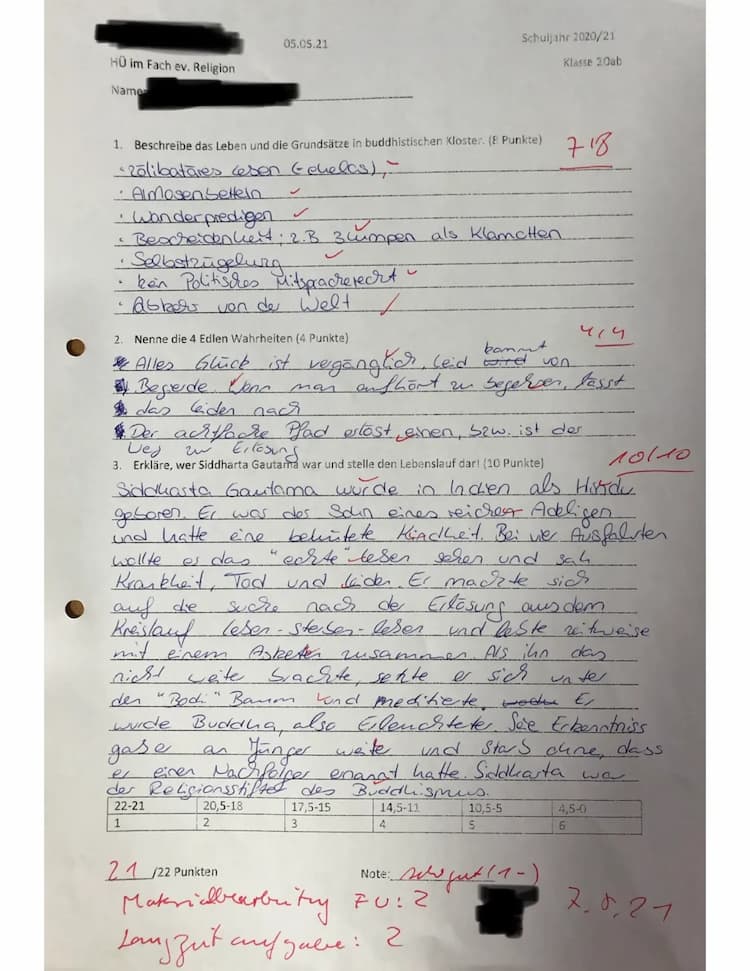 05.05.21
Schuljahr 2020/21
HÜ im Fach ev. Religion
Klasse 10ab
Name
1. Beschreibe das Leben und die Grundsätze in buddhistischen Kloster. (8 Punkte)
7/8
· zölibatäres Leben (ehelos),
· Almosenbetteln
· Wanderpredigen
· Bescheidenheit; z.B 3 Lumpen als Klamotten
· Selbstzügelung
· kein Politisches Mitspracherecht
· Abkehr von der Welt
2. Nenne die 4 Edlen Wahrheiten (4 Punkte)
4/4
Alles Glück ist vergänglich, Leid kommt von
Begierde. Wenn man aufhört zu begehren, lässt
das leiden nach
Der achtfache Pfad erlöst einen, bzw. ist der
Weg zur Erlösung
3. Erkläre, wer Siddharta Gautama war und stelle den Lebenslauf dar! (10 Punkte)
10/10
Siddharta Gautama wurde in Indien als Hindu
geboren. Er war der Sohn eines reichen Adeligen
und hatte eine behütete Kindheit. Bei vier Ausfahrten
wollte er das "echte" Leben sehen und sah
Krankheit, Tod und Leiden. Er machte sich
auf die Suche nach der Erlösung aus dem
Kreislauf leben-sterben-leben und lebte zeitweise
mit einem Asketen zusammen. Als ihn das
nicht weiter brachte, setzte er sich unter
den "Bodi" Baum und meditierte. Er
wurde Buddha, also Erleuchteter. Die Erkenntniss
gab er an Jünger weiter und starb ohne, dass
er einen Nachfolger ernannt hatte. Siddharta war
der Religionsstifter des Buddhismus.
22-21 20,5-18 17,5-15 14,5-11 10,5-5 4,5-0
1 2 3 4 5 6
21 /22 Punkten
Note: sehr gut (1-)
Materialbearbeitung FU: 2
7.5.21
Langzeitaufgabe: 2